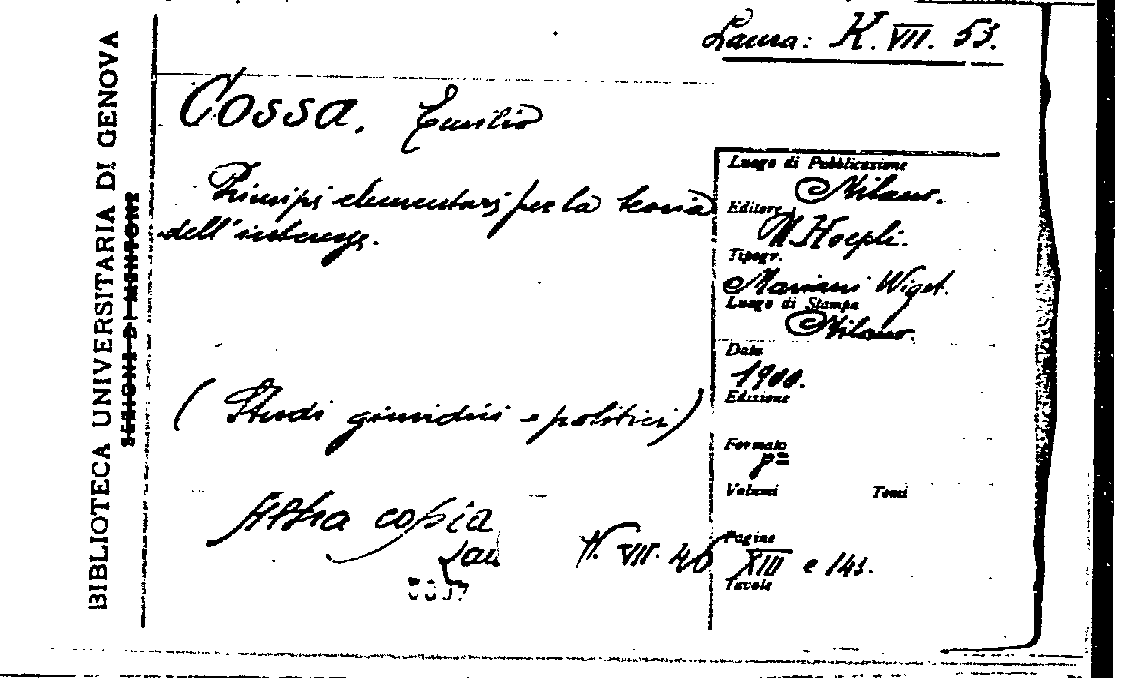 Laura: K. VII. 53.
BIBLIOTECA UNIVERSITARIA DI GENOVA
Cossa, Emilio
Principi elementari per la teoria
dell'interesse.
(Studi giuridici e politici)
Altra copia
Lau
K. VII. 46
Luogo di Pubblicazione
Milano.
Editore
U. Hoepli.
Tipogr.
Mariani Wiget.
Luogo di Stampa
Milano.
Data
1900.
Edizione
Formato
p°
Volumi Tomi
Pagine
XIII e 143.
Tavole